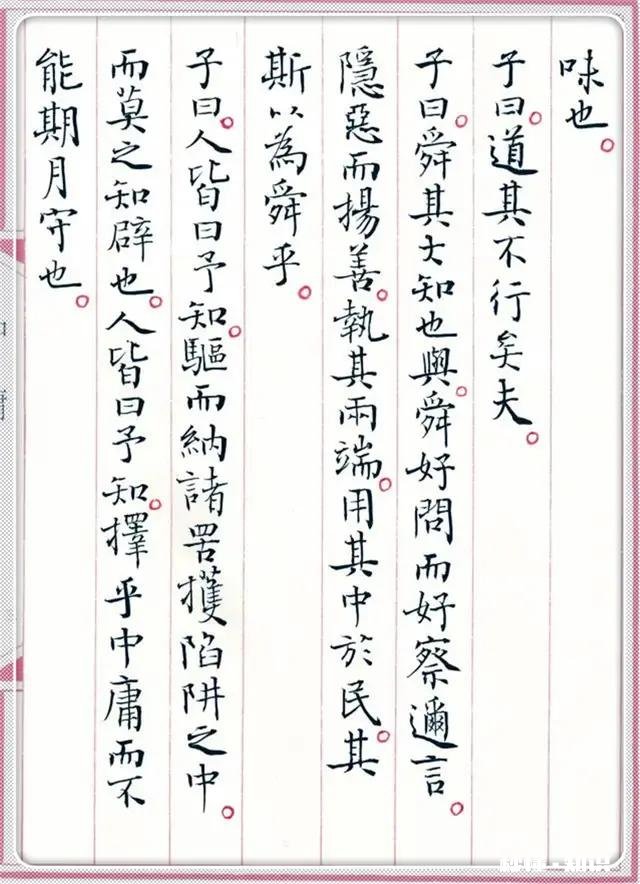 味也。
子曰。道其不行矣夫。
子曰。舜其大知也與。舜好問而好察邇言。
隱惡而揚善。執其兩端。用其中於民。其
斯以為舜乎。
子曰。人皆曰予知。驅而納諸罟擭陷阱之中。
而莫之知辟也。人皆曰予知。擇乎中庸而不
能期月守也。
中庸